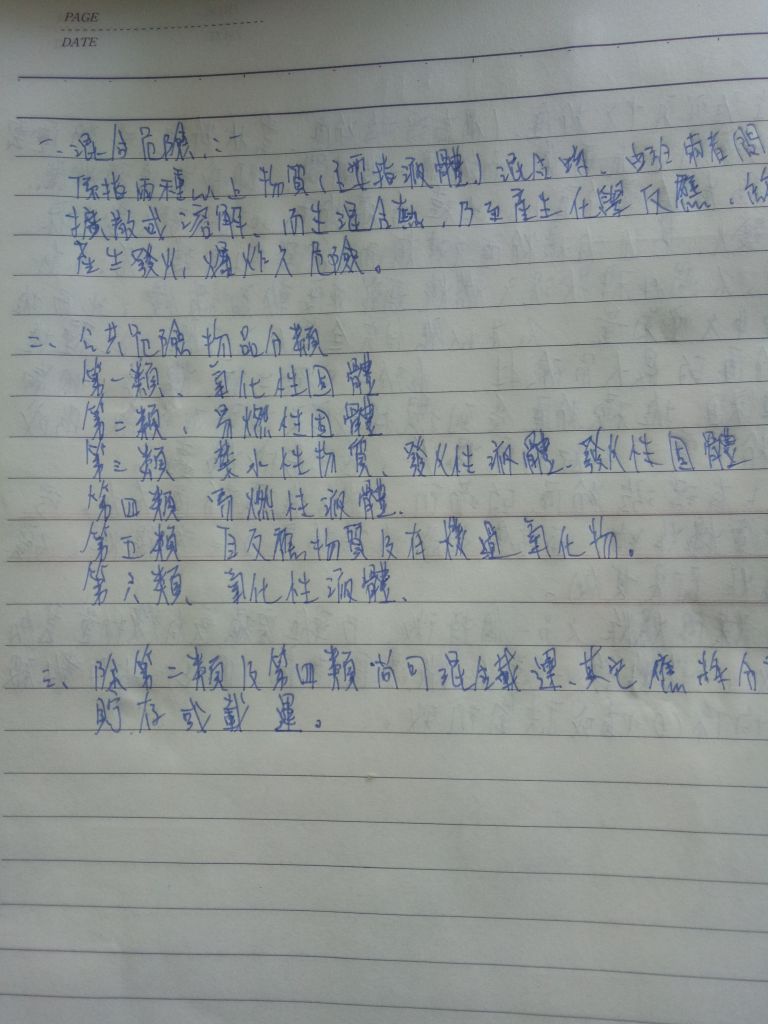 PAGE
DATE
一、混合危險:
係指兩種以上物質(主要指液體)混合時、由於兩者間
擴散或溶解、而生混合熱,乃至產生化學反應,
產生發火,爆炸之危險。
二、公共危險物品分類
第一類、氧化性固體
第二類、易燃性固體
第三類 禁水性物質、發火性液體、發火性固體
第四類 易燃性液體、
第五類 自反應物質及有機過氧化物。
第六類、氧化性液體、
三、除第二類及第四類尚可混合載運、其它應將分
貯存或載運。